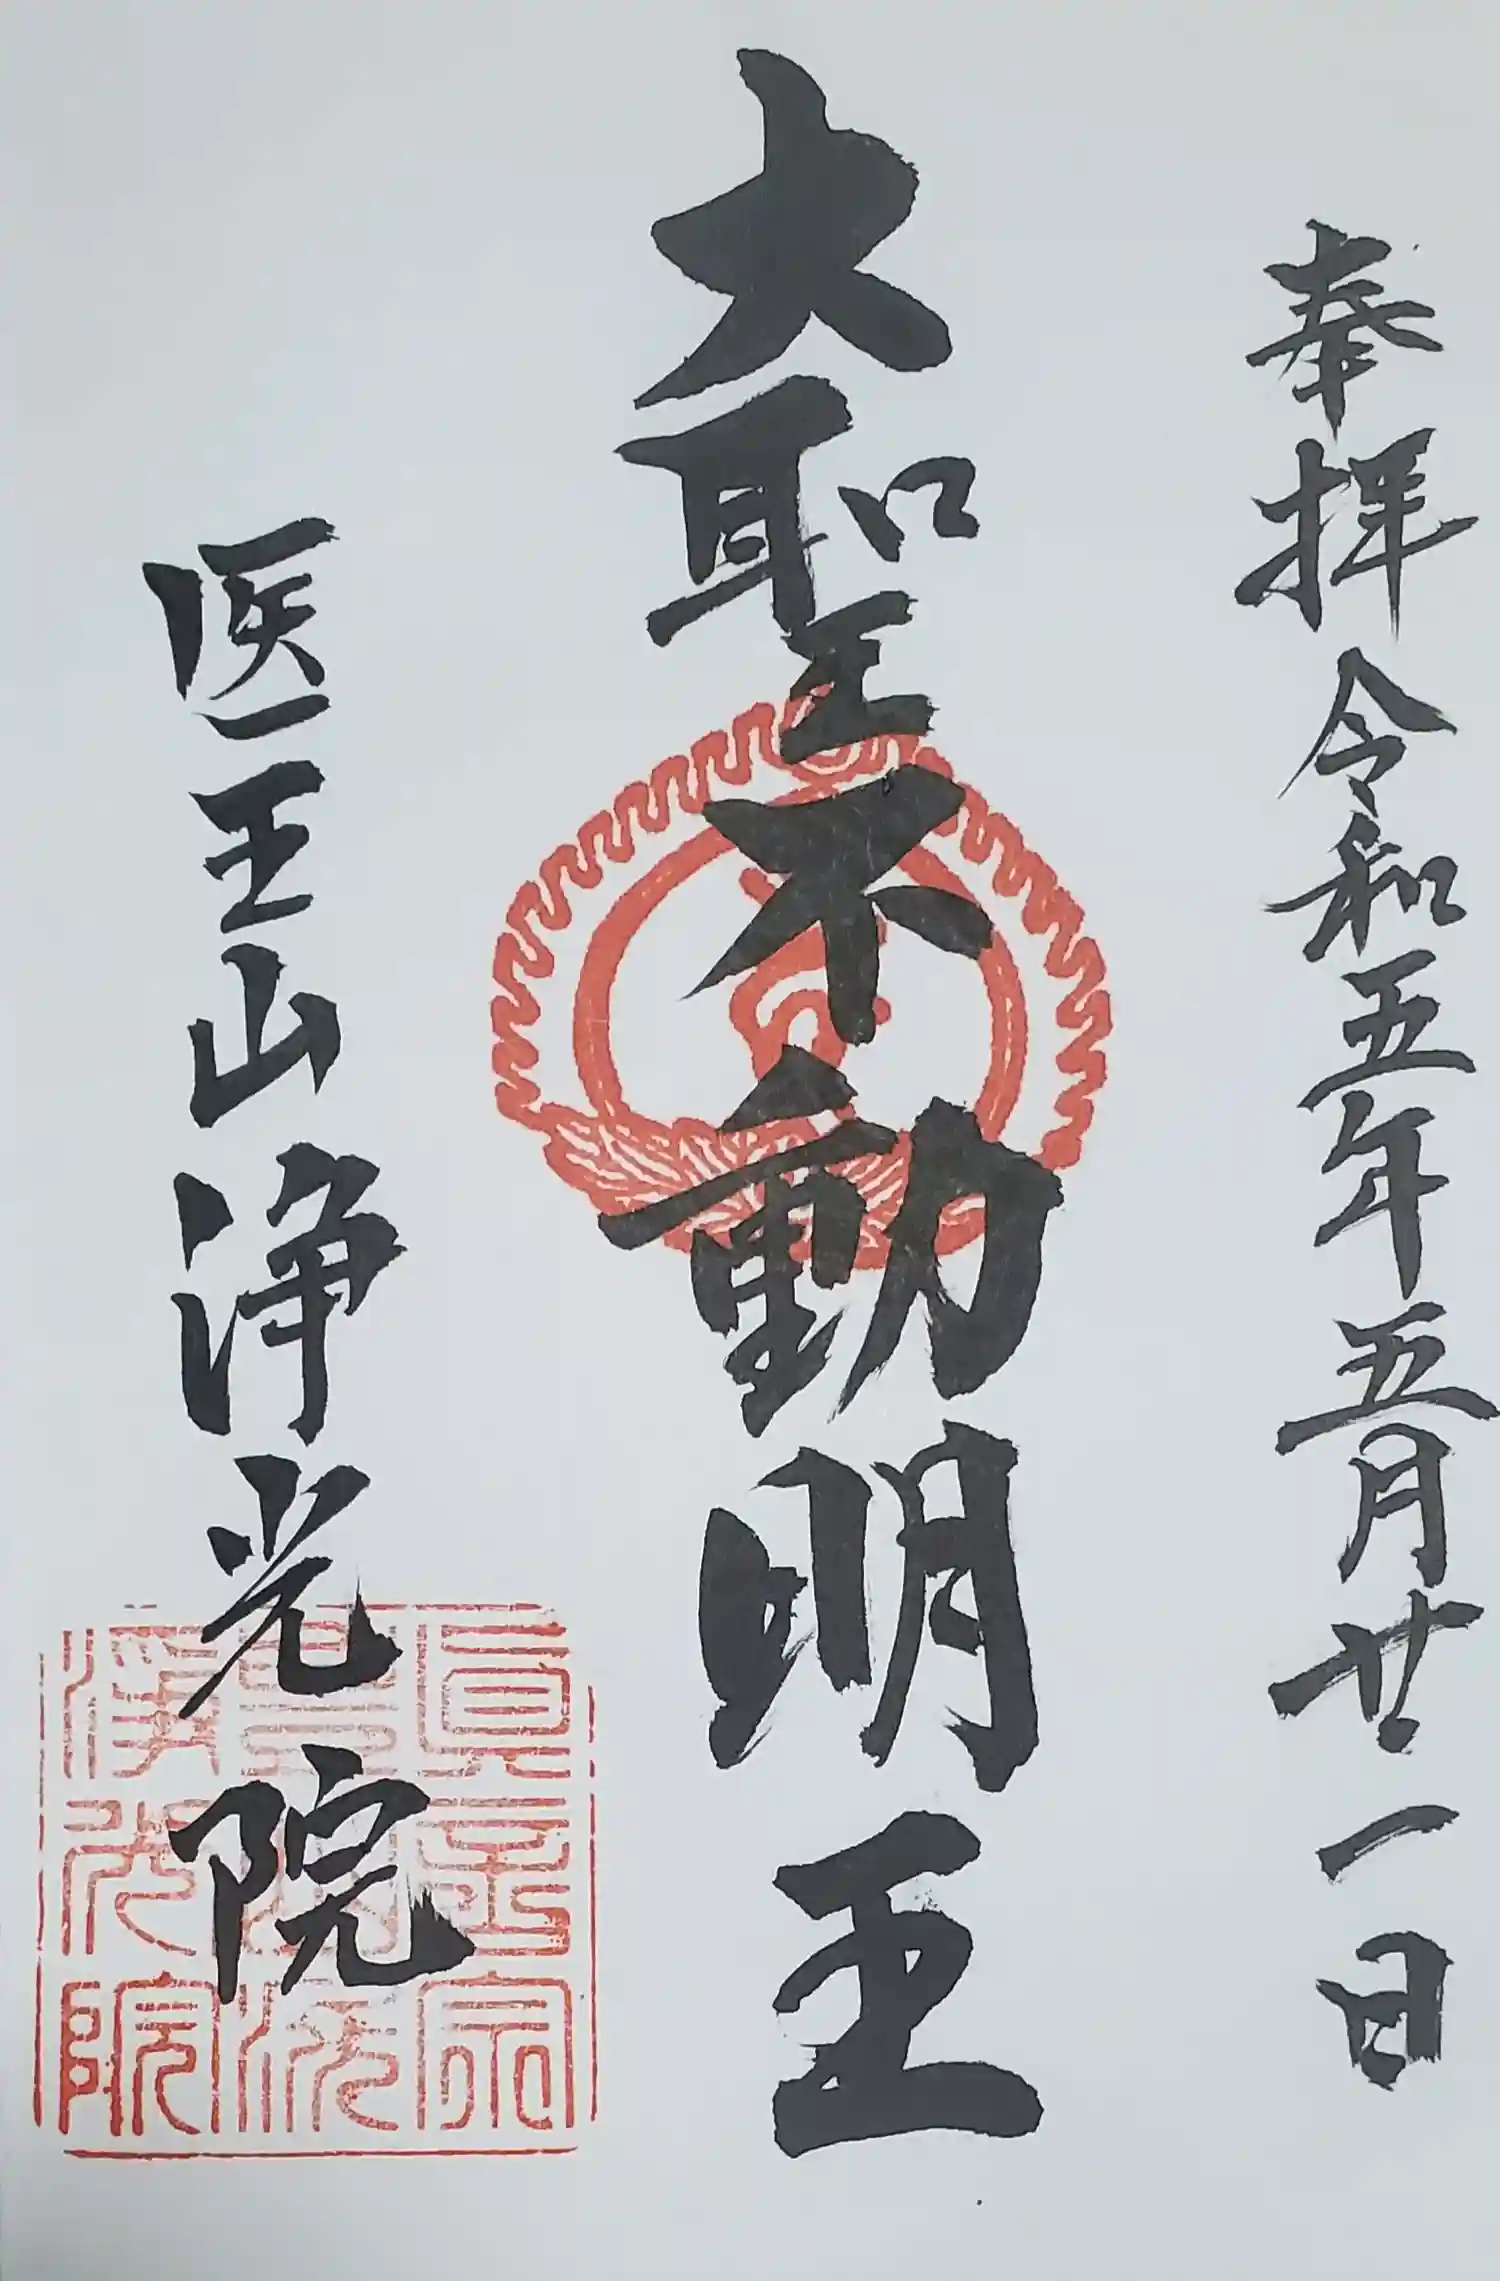 奉拝令和五年五月廿一日
大聖不動明王
医王山浄光院